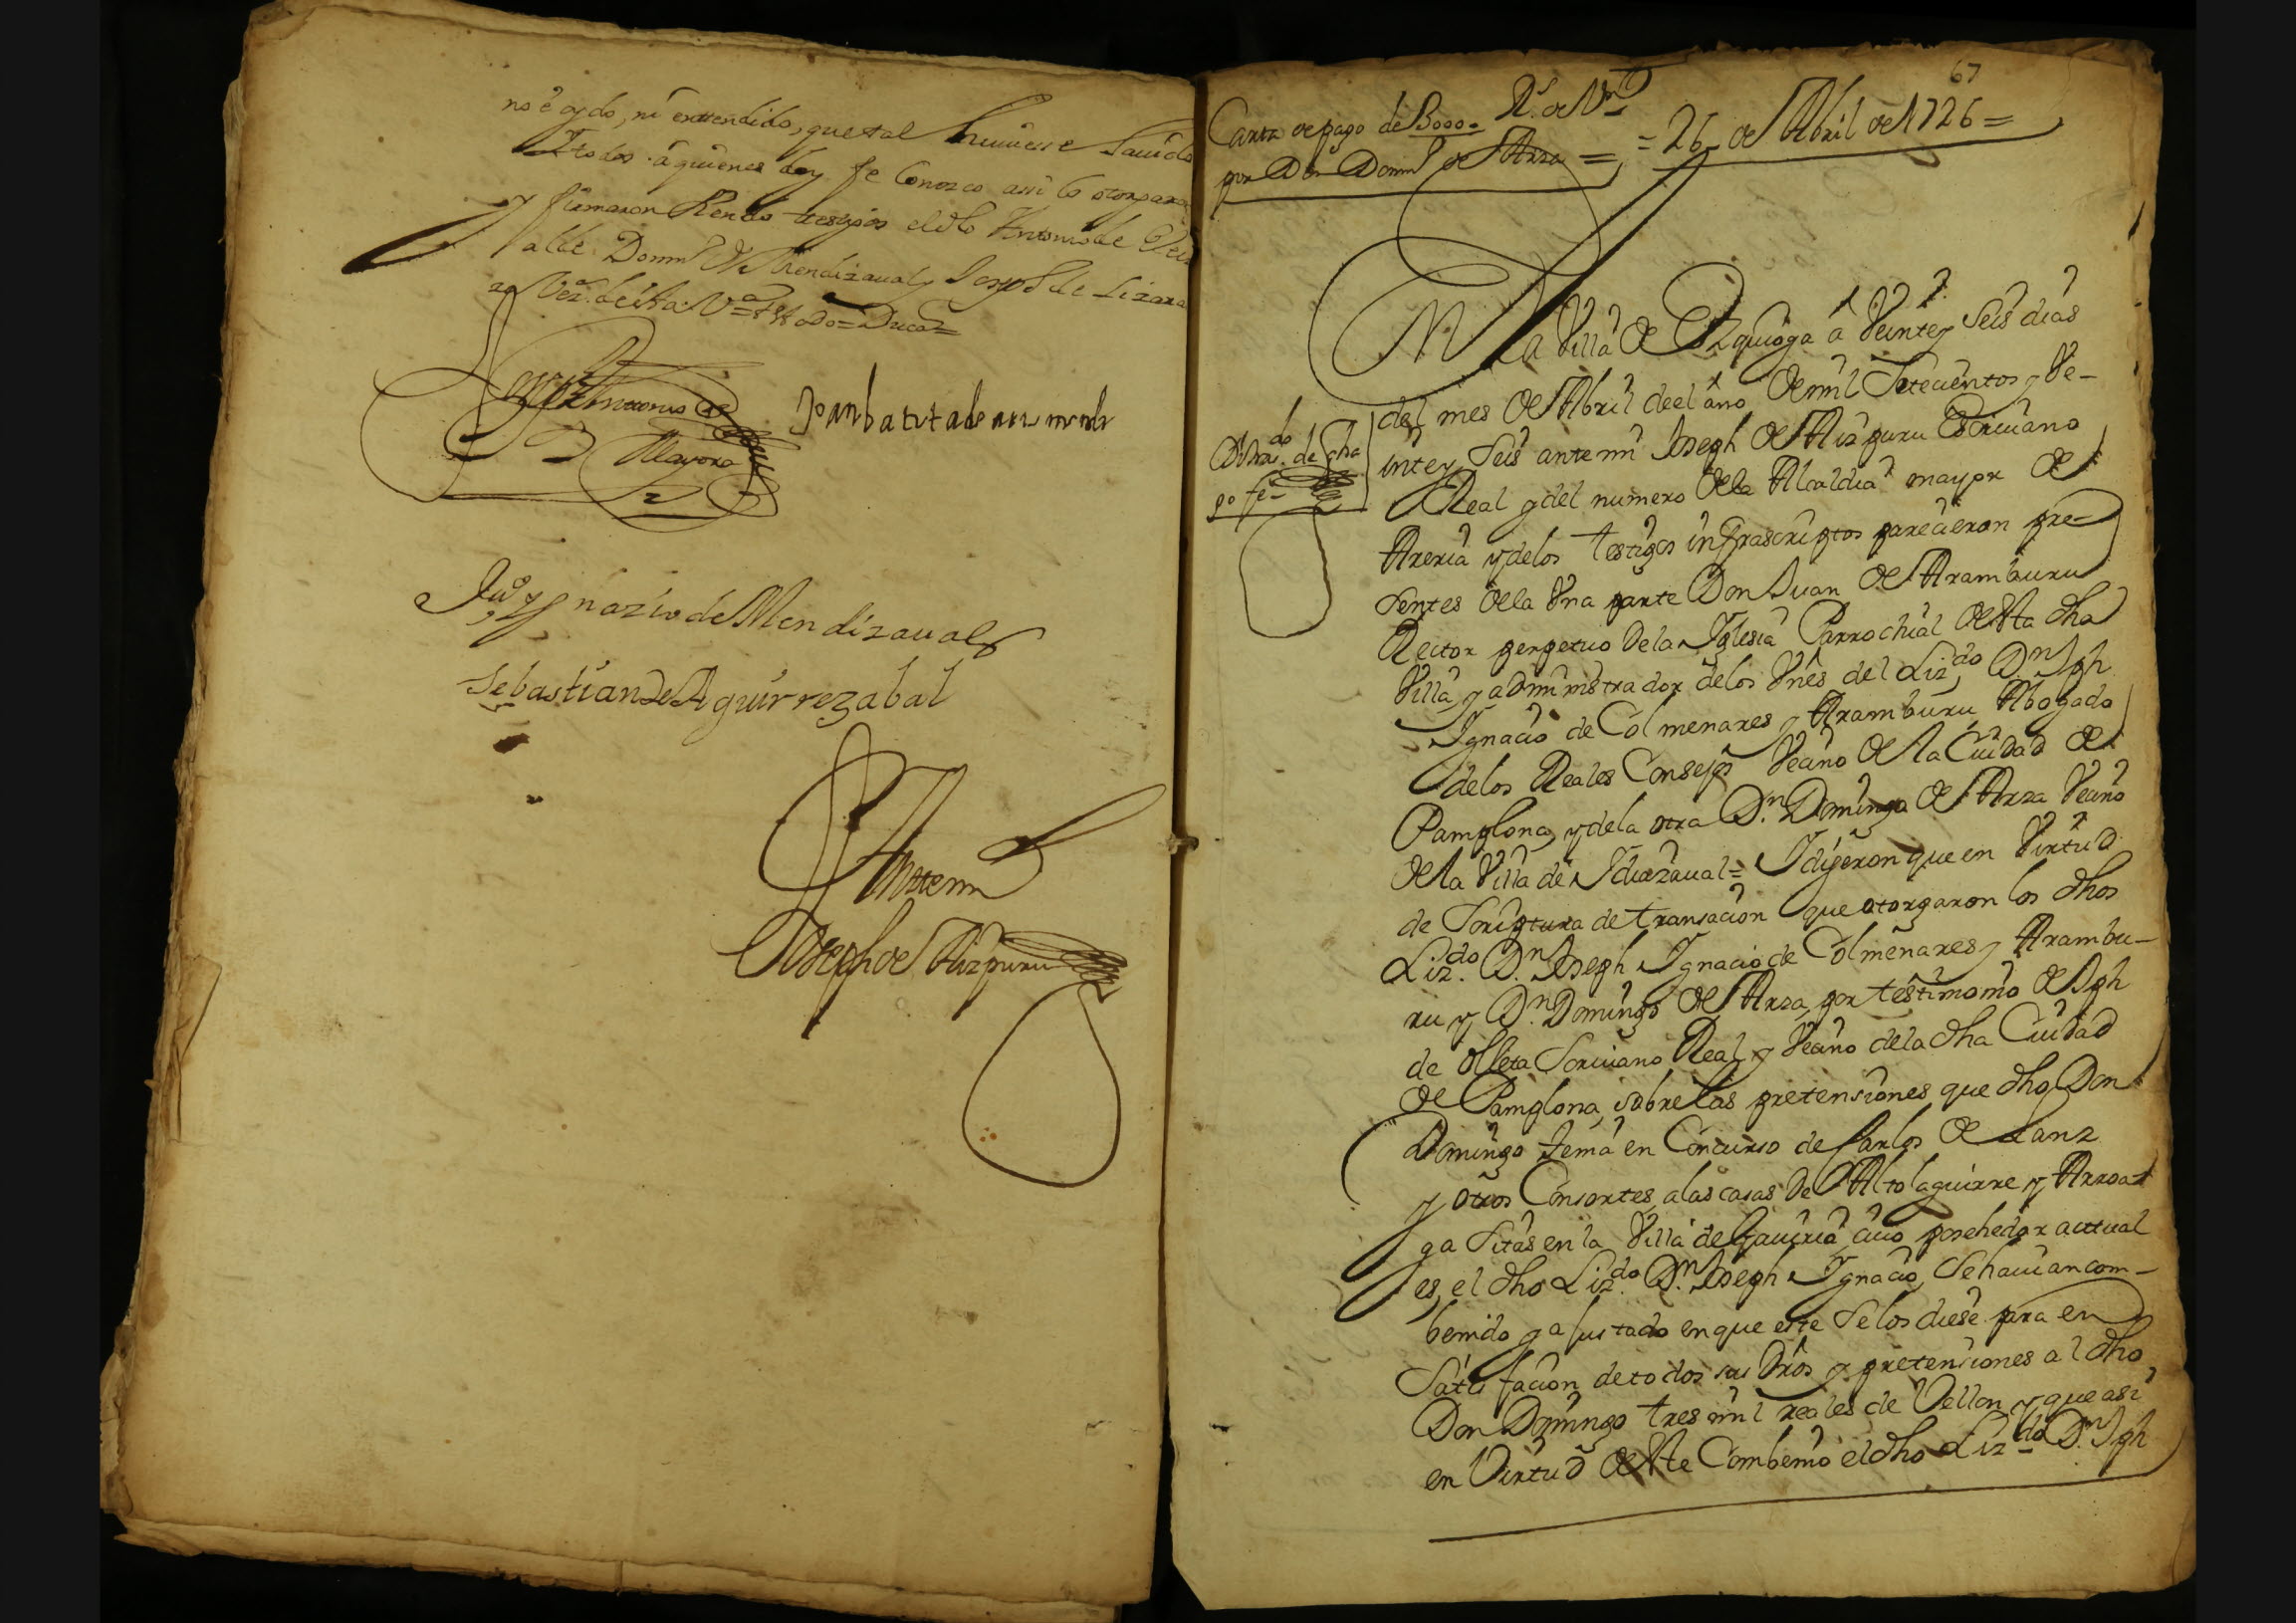 no é oydo, ni entendido, que tal huuiese hauido
Y todos â quienes doy fe Conozco assi lo otorgaron
y firmaron siendo testigos el dho Antonio de
alde Domin.º de Mendizaual y Joseph de Lizara
zo Vez.ºs de esta V.ª
Antonio de
Mayora
Joan batista de
Ju.º Ygnazio de Mendizaual
Sebastian de Aguirrezabal
Ante mi
Joseph de Aizpuru
67
Carta de pago de 3000 R.s de V.on
por Dôn Domin.º de Arza =
= 26 de Abril de 1726 =
En La Villa de Ezquioga â Veinte y Seis dias
del mes de Abril de el año de mil Setecientos y Ve-
inte y Seis ante mi Joseph de Aizpuru Escriuano
Real y del numero de la Alcaldia mayor de
Areria y de los testigos infrascriptos parecieron pre-
sentes de la Vna parte Don Juan de Aramburu
Rector perpetuo de la Iglesia Parrochial de esta dha
Villa, y administrador de los Vnes del Liz.do D.n Jph
Ignacio de Colmenares y Aramburu Abogado
de los Reales Consejos Vecino de la Ciudad de
Pamplona, y de la otra D.n Domingo de Arza Vecino
de la Villa de Idiazaual = I dijeron que en Virtud
de Scriptura de transacion que otorgaron los dhos
Liz.do D.n Joseph Ignacio de Colmenares y Arambu-
ru y D.n Domingo de Arza, por testimonio de Jph
de Olleta Scriuano Real y Vecino de la dha Ciudad
de Pamplona, sobre las pretensiones que dho Don
Domingo tenia en Concurso de Carlos de Lanz
y otros Consortes, a las casas de Altolaguirre y Arroas
ga Sitas en la Villa de Gauiria cuio posehedor acttual
es, el dho Liz.do D.n Joseph Ignacio, Se hauian com-
benido y ajustado en que este Se los diese para en
Satisfacion de todos sus drôs y pretensiones al dho
Don Domingo tres mil reales de Vellon, y que asi
en Virtud de este Combenio el dho Liz.do D.n Jph
D. Tras.do de
po fê